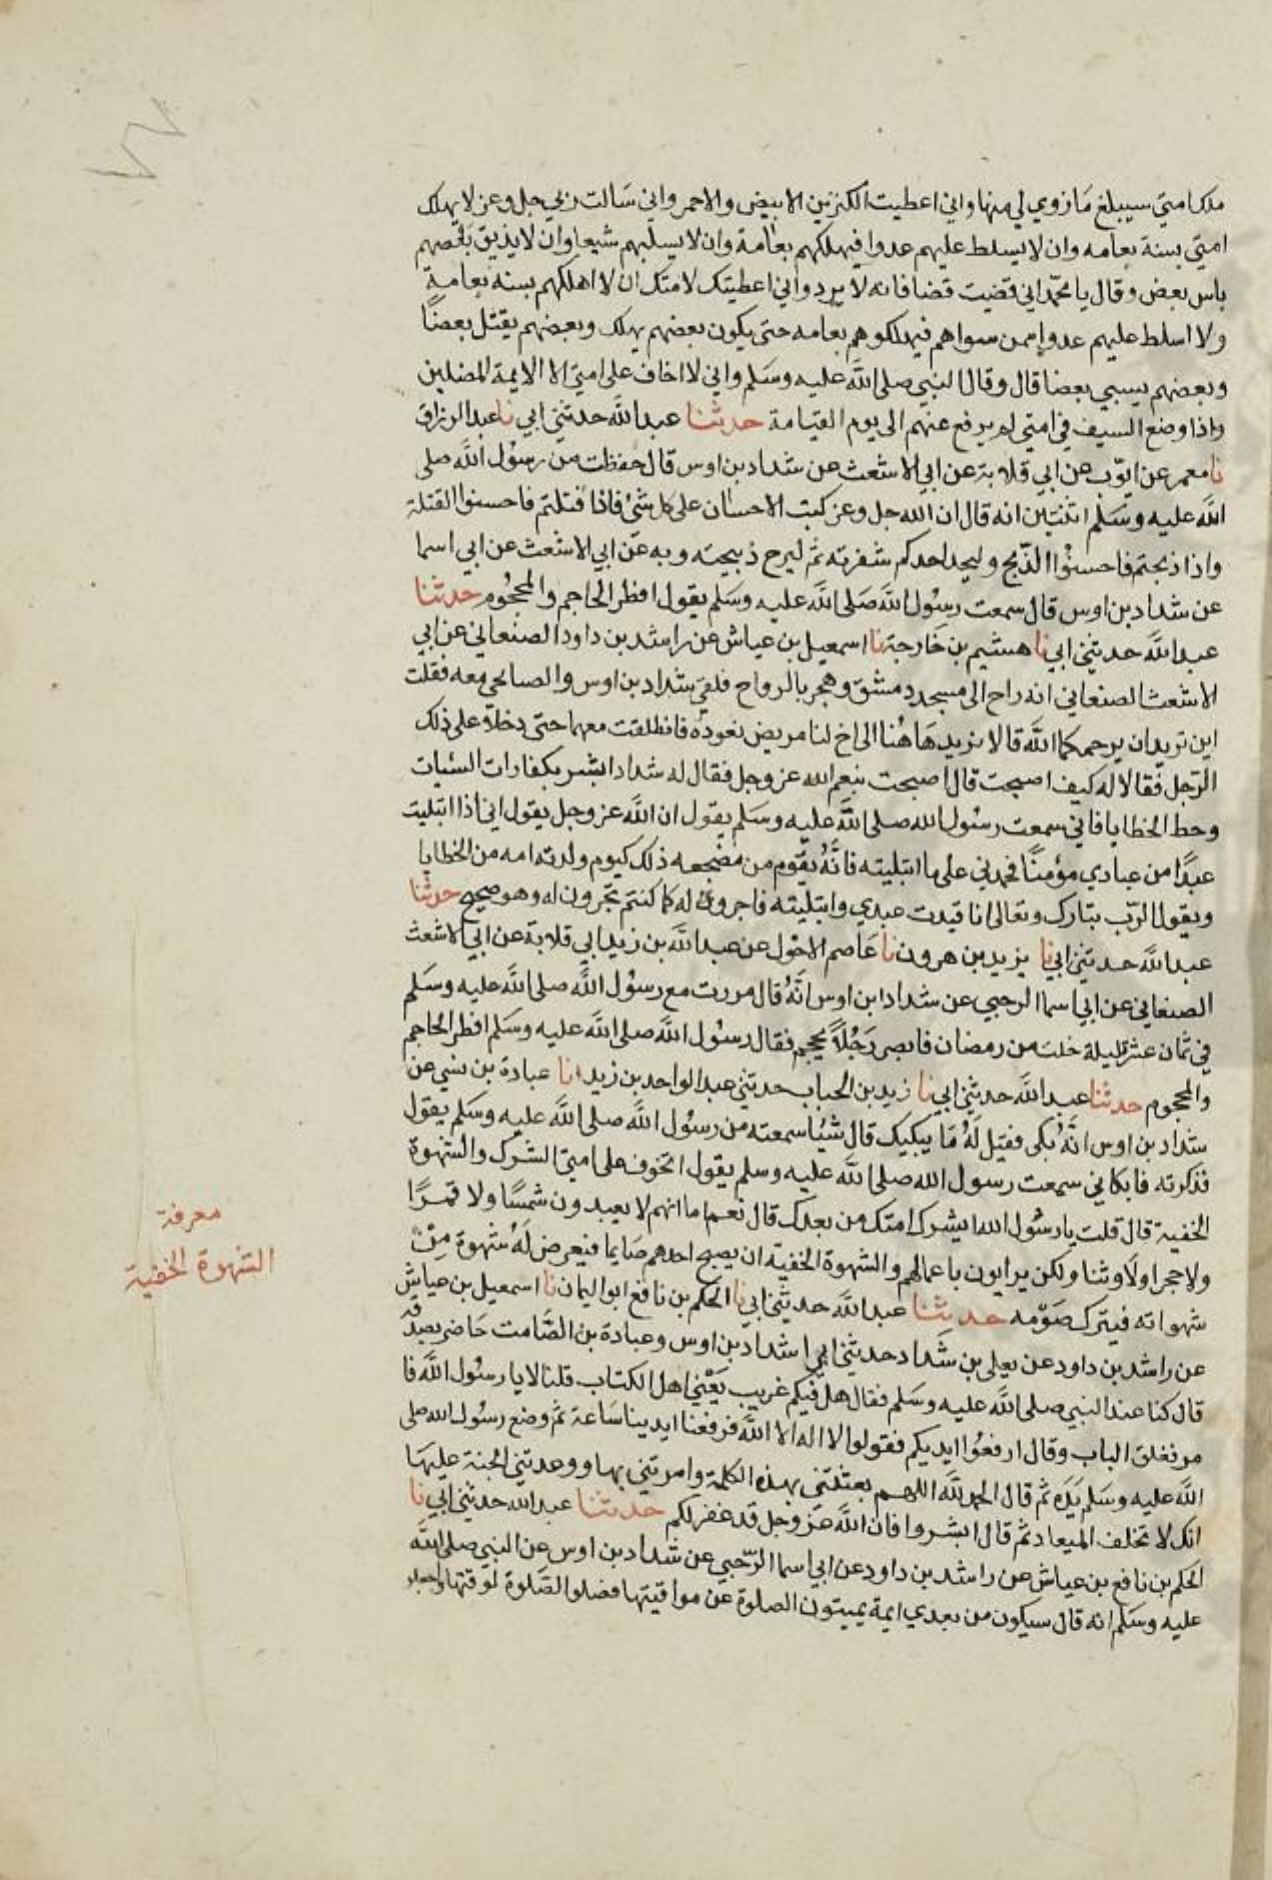 ملك امتي سيبلغ ما زوي لي منها واني اعطيت الكنزين الابيض والاحمر واني سالت ربي جل وعز لا يهلك
امتي بسنة بعامه وان لا يسلط عليهم عدوا فيهلكهم بعامة وان لا يسلبهم شيعا وان لا يذيق بعضهم
باس بعض وقال يا محمد اني قضيت قضا فانه لا يرد واني اعطيتك لامتك ان لا اهلكهم بسنه بعامة
ولا اسلط عليهم عدوا ممن سواهم فيهلكوهم بعامه حتى يكون بعضهم يهلك وبعضهم يقتل بعضا
وبعضهم يسبي بعضا قال وقال النبي صلى الله عليه وسلم واني لا اخاف على امتي الا الايمة المضلين
واذا وضع السيف في امتي لم يرفع عنهم الى يوم القيامة حدثنا عبد الله حدثني ابي نا عبد الرزاق
نا معمر عن ايوب عن ابي قلابة عن ابي الاشعث عن شداد بن اوس قال حفظت من رسول الله صلى
الله عليه وسلم اثنتين انه قال ان الله جل وعز كتب الاحسان على كل شئ فاذا قتلتم فاحسنوا القتلة
واذا ذبحتم فاحسنوا الذبح وليحد احدكم شفرته ثم ليرح ذبيحته وبه عن ابي الاشعث عن ابي اسما
عن شداد بن اوس قال سمعت رسول الله صلى الله عليه وسلم يقول افطر الحاجم والمحجوم حدثنا
عبد الله حدثني ابي نا هشيم بن خارجة نا اسمعيل بن عياش عن راشد بن داود الصنعاني عن ابي
الاشعث الصنعاني انه راح الى مسجد دمشق وهجر بالرواح فلقي شداد بن اوس والصنابحي معه فقلت
اين تريدان يرحمكما الله قالا نريد هاهنا الى اخ لنا مريض نعوده فانطلقت معهما حتى دخلا على ذلك
الرجل فقالا له كيف اصبحت قال اصبحت بنعم الله عز وجل فقال له شداد ابشر بكفارات السيات
وحط الخطايا فاني سمعت رسول الله صلى الله عليه وسلم يقول ان الله عز وجل يقول اني اذا ابتليت
عبدا من عبادي مؤمنا فحمدني على ما ابتليته فانه يقوم من مضجعه ذلك كيوم ولدته امه من الخطايا
ويقول الرب تبارك وتعالى انا قيدت عبدي وابتليته فاجروا له كما كنتم تجرون له وهو صحيح حدثنا
عبد الله حدثني ابي نا يزيد بن هرون نا عاصم الاحول عن عبد الله بن زيد ابي قلابة عن ابي الاشعث
الصنعاني عن ابي اسما الرحبي عن شداد ابن اوس انه قال مررت مع رسول الله صلى الله عليه وسلم
في ثمان عشر ليلة خلت من رمضان فابصر رجلا يحجم فقال رسول الله صلى الله عليه وسلم افطر الحاجم
والمحجوم حدثنا عبد الله حدثني ابي نا زيد بن الحباب حدثني عبد الواحد بن زيد انا عبادة بن نسي عن
شداد بن اوس انه بكى فقيل له ما يبكيك قال شيا سمعته من رسول الله صلى الله عليه وسلم يقول
فذكرته فابكاني سمعت رسول الله صلى الله عليه وسلم يقول اتخوف على امتي الشرك والشهوة
الخفية قال قلت يا رسول الله ايشرك امتك من بعدك قال نعم اما انهم لا يعبدون شمسا ولا قمرا
ولا حجرا ولا وثنا ولكن يرايون باعمالهم والشهوة الخفية ان يصبح احدهم صايما فيعرض له شهوة من
شهواته فيترك صومه حدثنا عبد الله حدثني ابي نا الحكم بن نافع ابو اليمان نا اسمعيل بن عياش
عن راشد بن داود عن يعلى بن شداد حدثني ابي شداد بن اوس وعبادة بن الصامت حاضر يصدقه
قال كنا عند النبي صلى الله عليه وسلم فقال هل فيكم غريب يعني اهل الكتاب قلنا لا يا رسول الله فا
مر بغلق الباب وقال ارفعوا ايديكم فقولوا لا اله الا الله فرفعنا ايدينا ساعة ثم وضع رسول الله صلى
الله عليه وسلم يده ثم قال الحمد لله اللهم بعثتني بهذه الكلمة وامرتني بها ووعدتني الجنة عليها
انك لا تخلف الميعاد ثم قال ابشروا فان الله عز وجل قد غفر لكم حدثنا عبد الله حدثني ابي نا
الحكم بن نافع بن عياش عن راشد بن داود عن ابي اسما الرحبي عن شداد بن اوس عن النبي صلى الله
عليه وسلم انه قال سيكون من بعدي ايمة يميتون الصلوة عن مواقيتها فصلوا الصلوة لوقتها واجعلو
معرفة
الشهوة الخفية